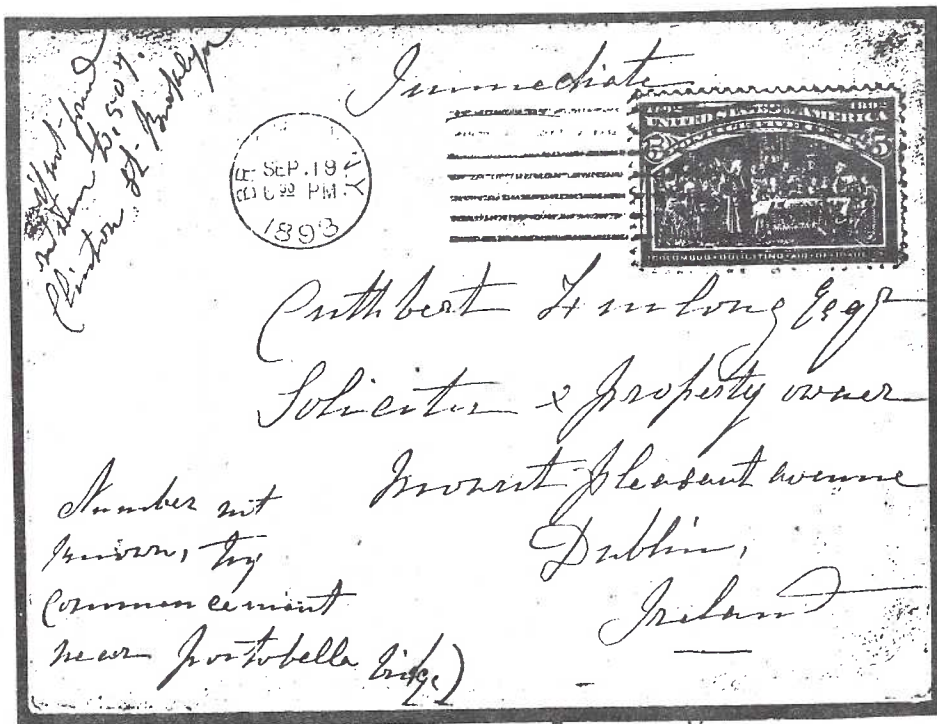 if not found
return to 507.
Clinton St. Brooklyn
Immediate
SEP. 19
PM
1893
1492 1892
UNITED STATES OF AMERICA
5 5
COLUMBUS SOLICITING AID OF
Cuthbert Furlong Esqr
Solicitor & property owner
Mount pleasant avenue
Dublin,
Ireland
Number not
known, try
commencement
near portobella bridge)